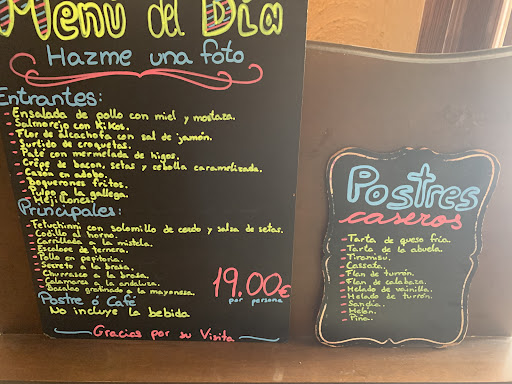 Menú del Día
Hazme una foto
Entrantes:
- Ensalada de pollo con miel y mostaza.
- Salmorejo con Kikos.
- Flor de alcachofa con sal de jamón.
- Surtido de croquetas.
- con mermelada de higos.
- Crêpe de bacon, setas y cebolla caramelizada.
- Cazón en adobo.
- Boquerones fritos.
- Pulpo a la gallega.
- Mejillones.
Principales:
- Fetuchinni con solomillo de cerdo y salsa de setas.
- Codillo al horno.
- Carrillada a la mistela.
- Escalope de ternera.
- Pollo en pepitoria.
- Secreto a la brasa.
- Churrasco a la brasa.
- Calamares a la andaluza.
- Bacalao gratinado a la mayonesa.
19,00€
por persona
Postre ó Café
No incluye la bebida
Gracias por su Visita
Postres
caseros
- Tarta de queso fría.
- Tarta de la abuela.
- Tiramisú.
- Cassata.
- Flan de turrón.
- Flan de calabaza.
- Helado de vainilla.
- Helado de turrón.
- Sandía.
- Melón.
- Piña.